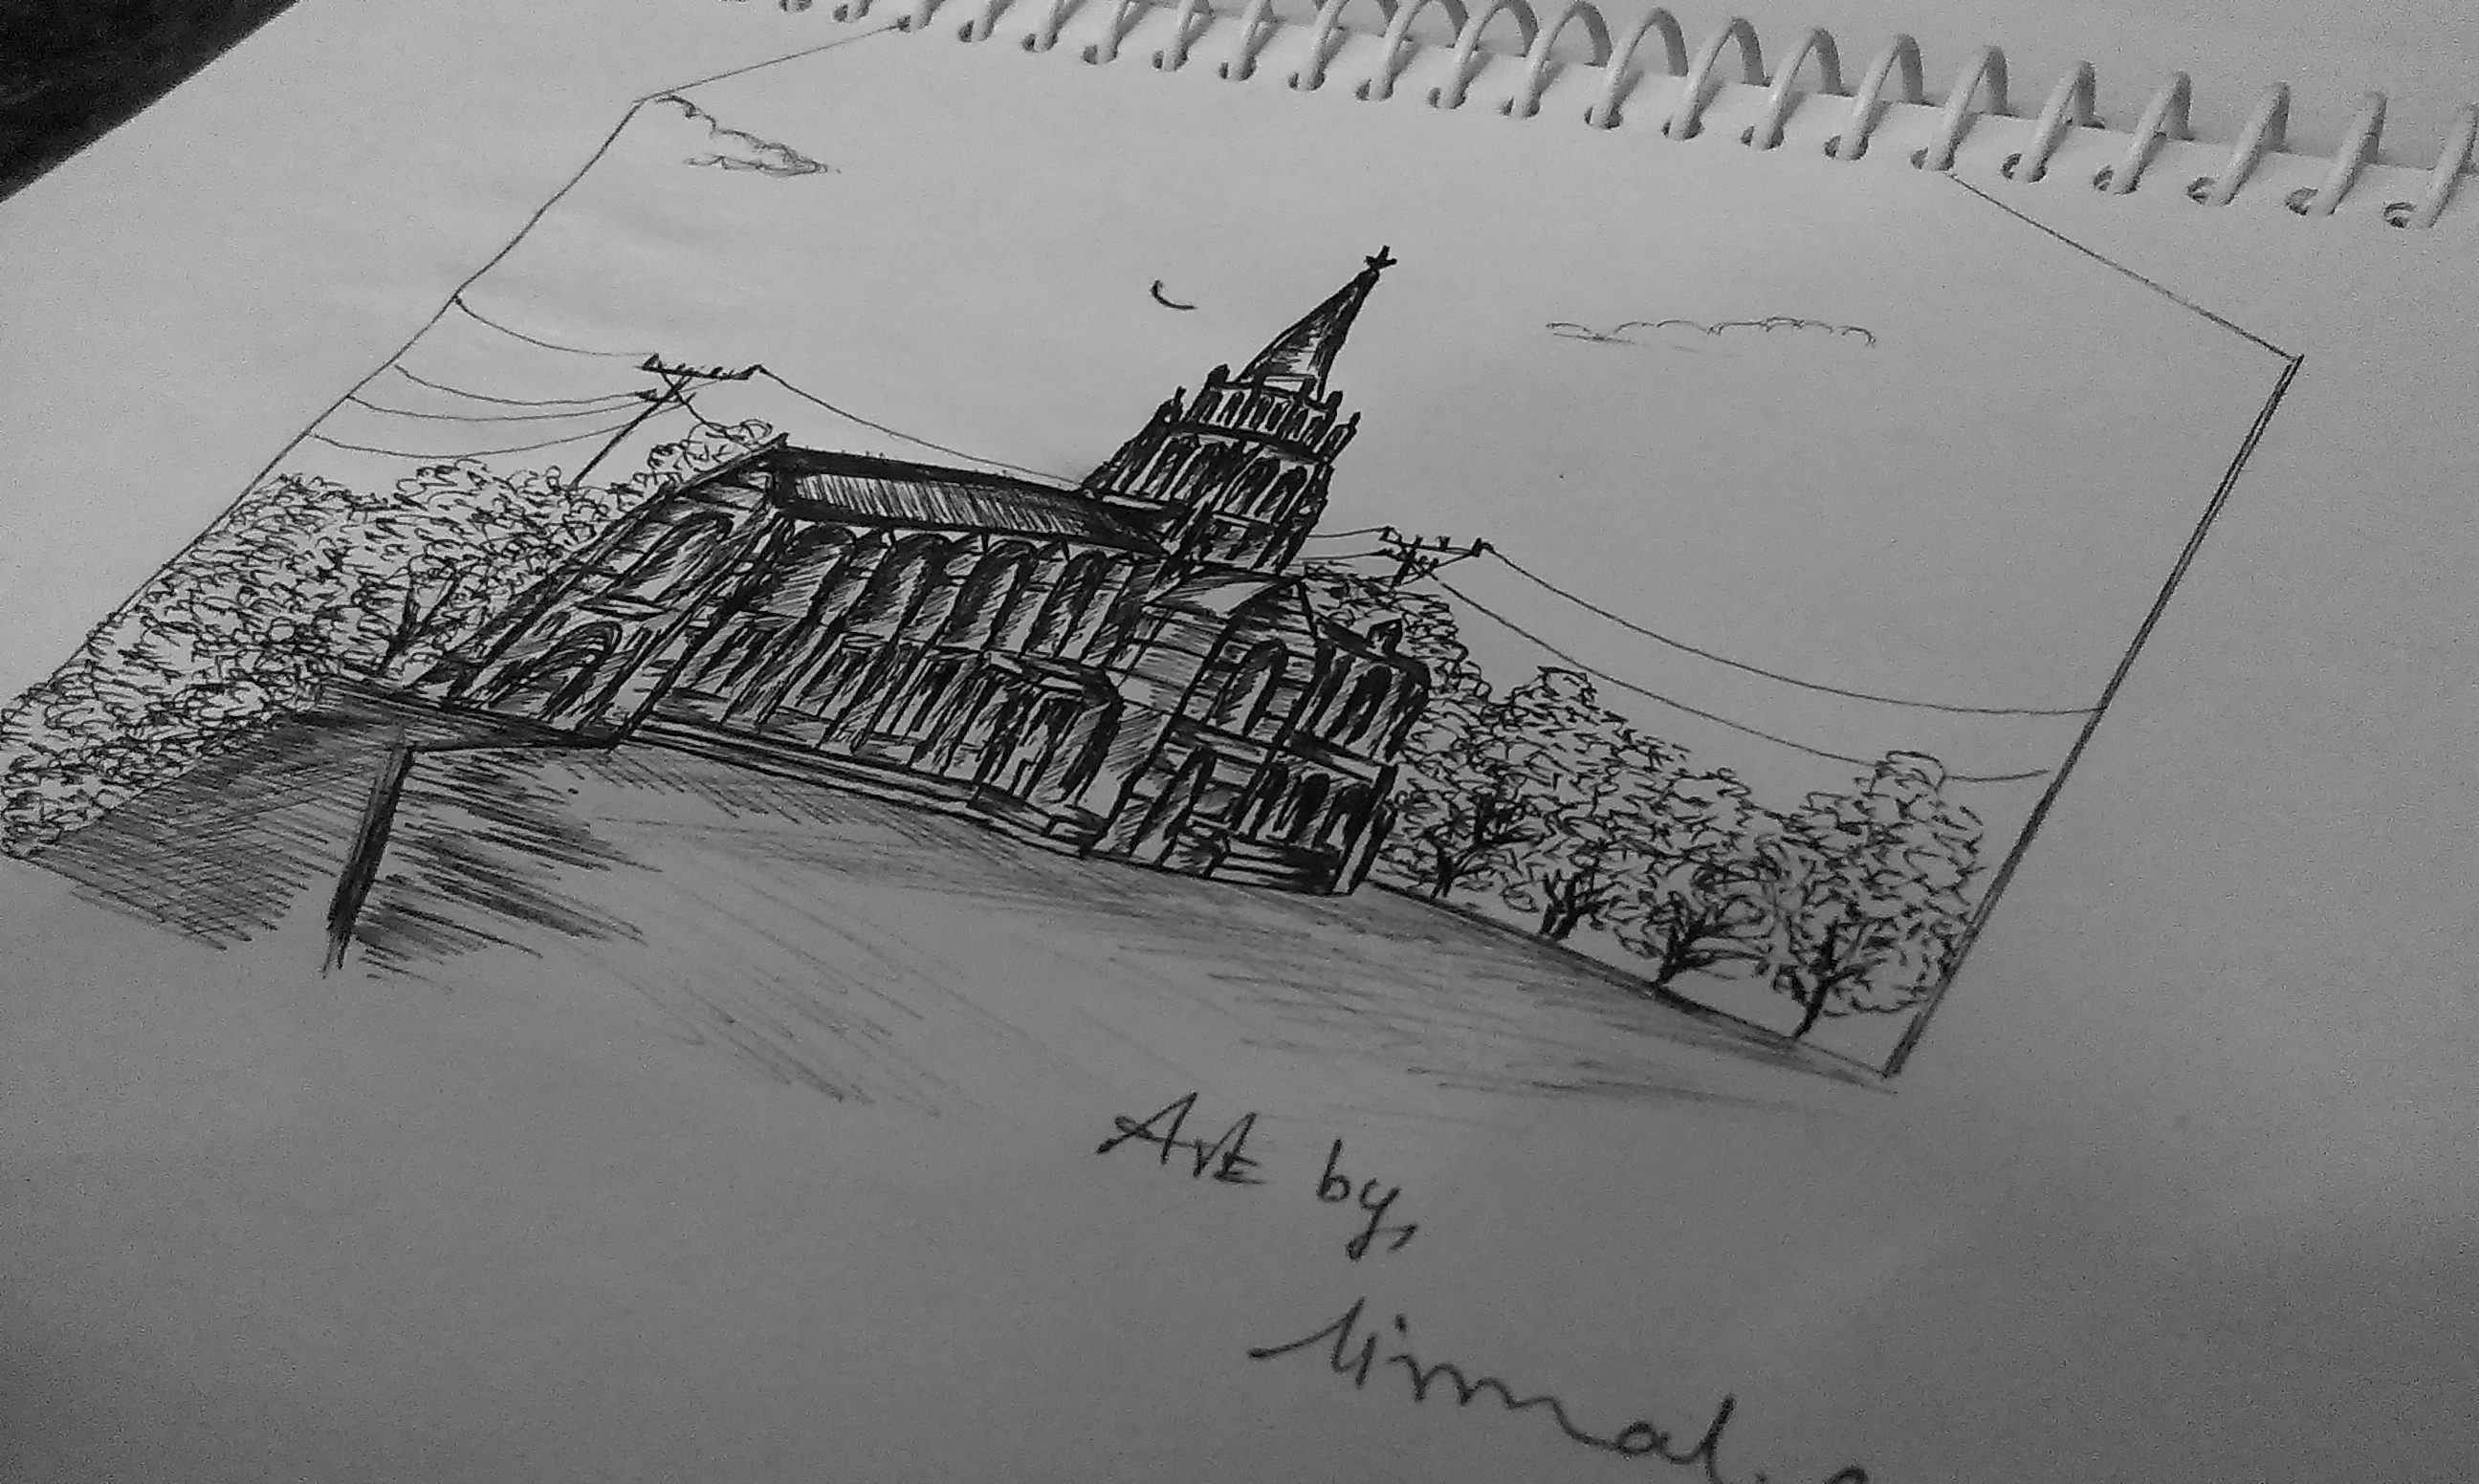 Art by,
Nirmal.